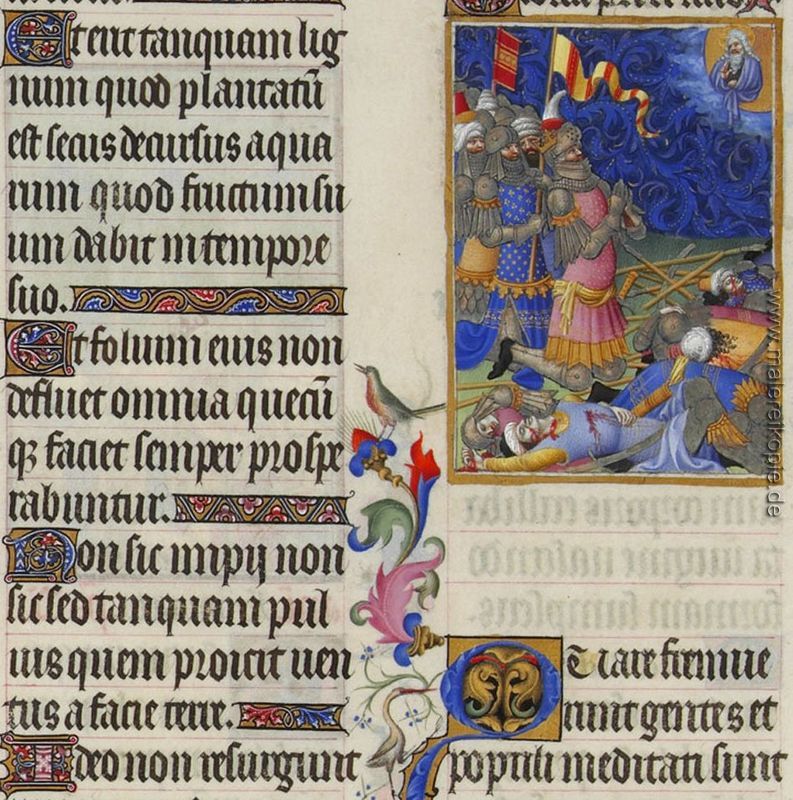 Et erit tanquam lig
num quod plantatū
est secus decursus aqua
rum quod fructum su
um dabit in tempore
suo.
Et folium eius non
defluet omnia quecū
qꝫ faciet semper prospe
rabuntur.
Non sic impij non
sic sed tanquam pul
uis quem proicit uen
tus a facie terre.
Ideo non resurgunt
QUare fremue
runt gentes et
populi meditati sunt
www.malereikopie.de